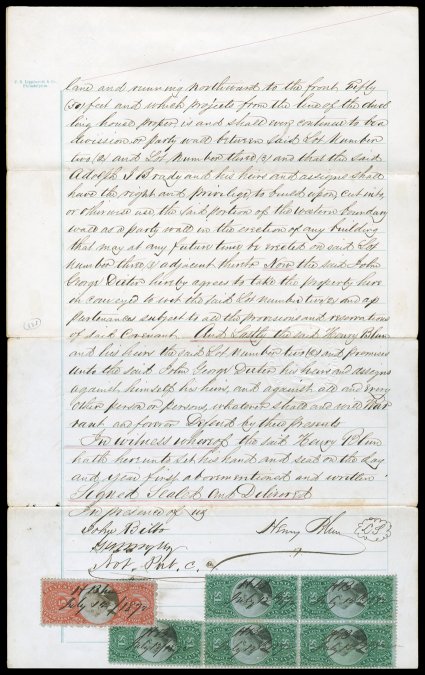 J. B. Lippincott & Co.
Philadelphia
lane and running northward to the front Fifty
(50) feet and which projects from the line of the dwel
ling house proper is and shall continue to be a
division or party wall between said Lot Number
two (2) and Lot Number three (3) and that the said
Adolph J Brady and his heirs and assigns shall
have the right and privilege to build upon, cut into
or otherwise use the said portion of the western boundary
wall as a party wall in the erection of any building
that may at any future time be erected on said Lot
Number three (3) adjacent thereto Now the said John
George Deeter hereby agrees to take the property here
in conveyed to wit the said Lot Number two (2) and ap
purtenances subject to all the provisions and reservations
of said Covenant. And Lastly the said Henry Blun
and his heirs the said Lot Number two (2) and premises
unto the said John George Deeter his heirs and assigns
against himself his heirs, and against all and every
other person or persons, whatever shall and will War
rant and forever Defend by these presents
In witness whereof the said Henry Blun
hath hereunto set his hand and seal on the day
and year first aforementioned and written
Signed Sealed and Delivered
In presence of us
John Bilbo
Henry Blun LS
Not. Pub. C.